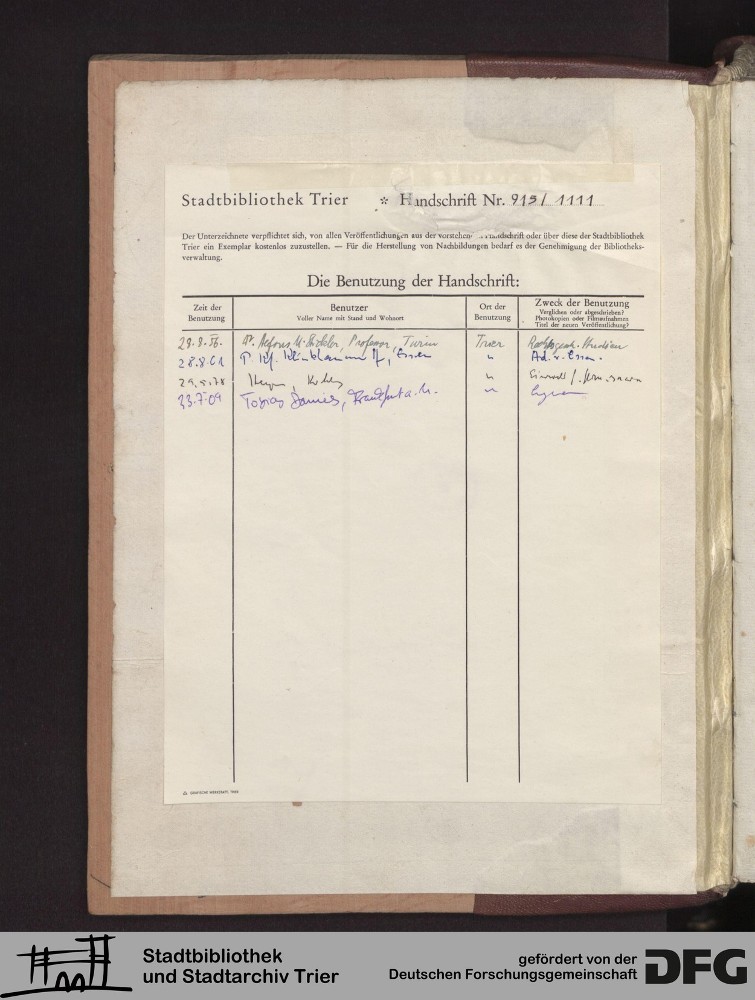 Stadtbibliothek Trier * Handschrift Nr. 913/1111
Der Unterzeichnete verpflichtet sich, von allen Veröffentlichungen aus der vorstehen Handschrift oder über diese der Stadtbibliothek
Trier ein Exemplar kostenlos zuzustellen. — Für die Herstellung von Nachbildungen bedarf es der Genehmigung der Bibliotheks-
verwaltung.
Die Benutzung der Handschrift:
Zeit der Benutzung
Benutzer
Voller Name mit Stand und Wohnort
Ort der Benutzung
Zweck der Benutzung
Verglichen oder abgeschrieben?
Photokopien oder Filmaufnahmen
Titel der neuen Veröffentlichung?
Dr. Alfons M. Stickler, Professor, Turin Trier
28.8.61 Essen "
"
23.7.09 Tobias Daniels, Frankfurt a. M. "
Stadtbibliothek
und Stadtarchiv Trier
gefördert von der
Deutschen Forschungsgemeinschaft
DFG